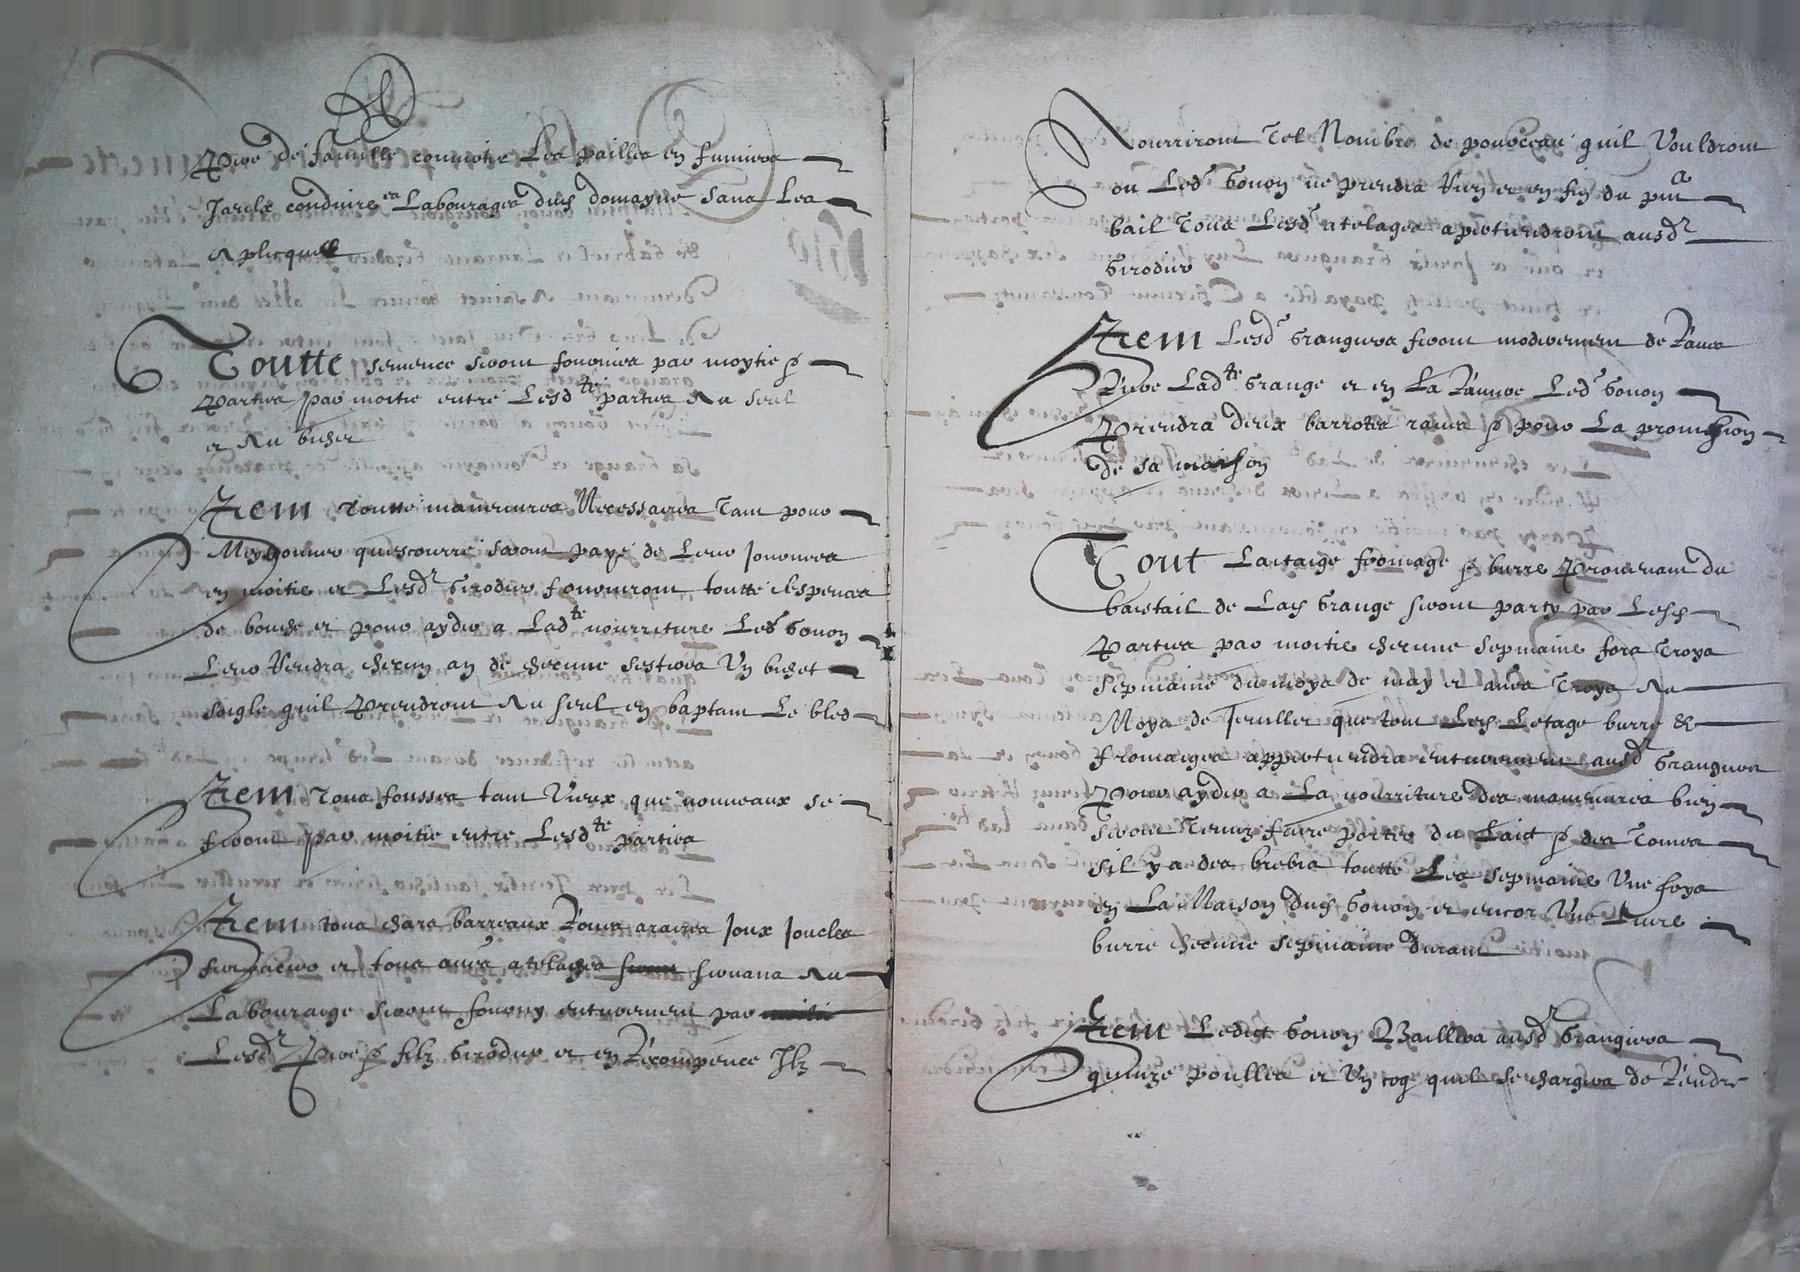 Pere de famille convertir Les pailles en fumiers
Jceulx conduire en Labourages dud domayne sans Les
Aplicquer
Toutte semence seront fournies par moytie &
Parties par moitie entre Lesdtes parties Au seul
et Au bicher
Item toutte manieuvres Necessaires Tant pour
Meyssonner quescourre seront paye de Leur Journees
en moitie et Lesdr Girodier fourniront toutte despences
de bouche et pour ayder a Ladte nourriture Led Gonon
Leur Rendra checun an de checune sestives Un bichet
seigle quil Prendront Au seul en baptant Le bled
Item tous fousses tant Vieux que nouveaux se
feront par moitie entre Lesdte parties
Item tous chars barreaux Roues araires Joux Joucles
et tous autres atelages servans Au
Labouraige seront fourny entierement par
Lesdr Pere & filz Girodier et en Recompence Ilz
Nourriront Tel Nombre de pourceau quil Vouldront
ou Led Gonon ne prendra Rien et en fin du pnt
bail Tous Lesd atelages apertiendront ausdr
Girodier
Item Lesd Grangiers feront modernement de Rames
Rière Ladte Grange et en La Ramee Led Gonon
Prendra deux barrotes rames & pour La provision
de sa maison
Tout Laitaige fromage & burre Provenant du
bestail de Lad Grange seront party par Lesd
Parties par moitie checune sepmaine fors Troys
sepmaine du moys de may et autres Troys Au
Moys de Jeuillet que tout Led Letage burre &
fromaiges appertiendra entierement ausd Grangiers
Pour ayder a La nourriture des manieuvres bien
seront Tenuz faire porter du Lait & des Tomes
sil y a des brebis toutte Les sepmaine Une foys
en La Maison dud Gonon et encor Une Livre
burre checune sepmaine durant
Item Ledict Gonon Baillera ausd Grangiers
quinze poulles et Un coq quil se chargera de Rendre